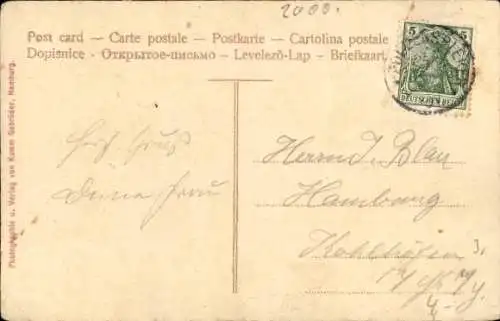 2000.
Post card — Carte postale — Postkarte — Cartolina postale
Dopisnice - Открытое-письмо – Levelezõ-Lap – Briefkaart
5 5
DEUTSCHES REICH
Photographie u. Verlag von Kumm Gebrüder, Hamburg.
Deine Frau
Herrn J. Blau
Hamburg
Kohlhöfen